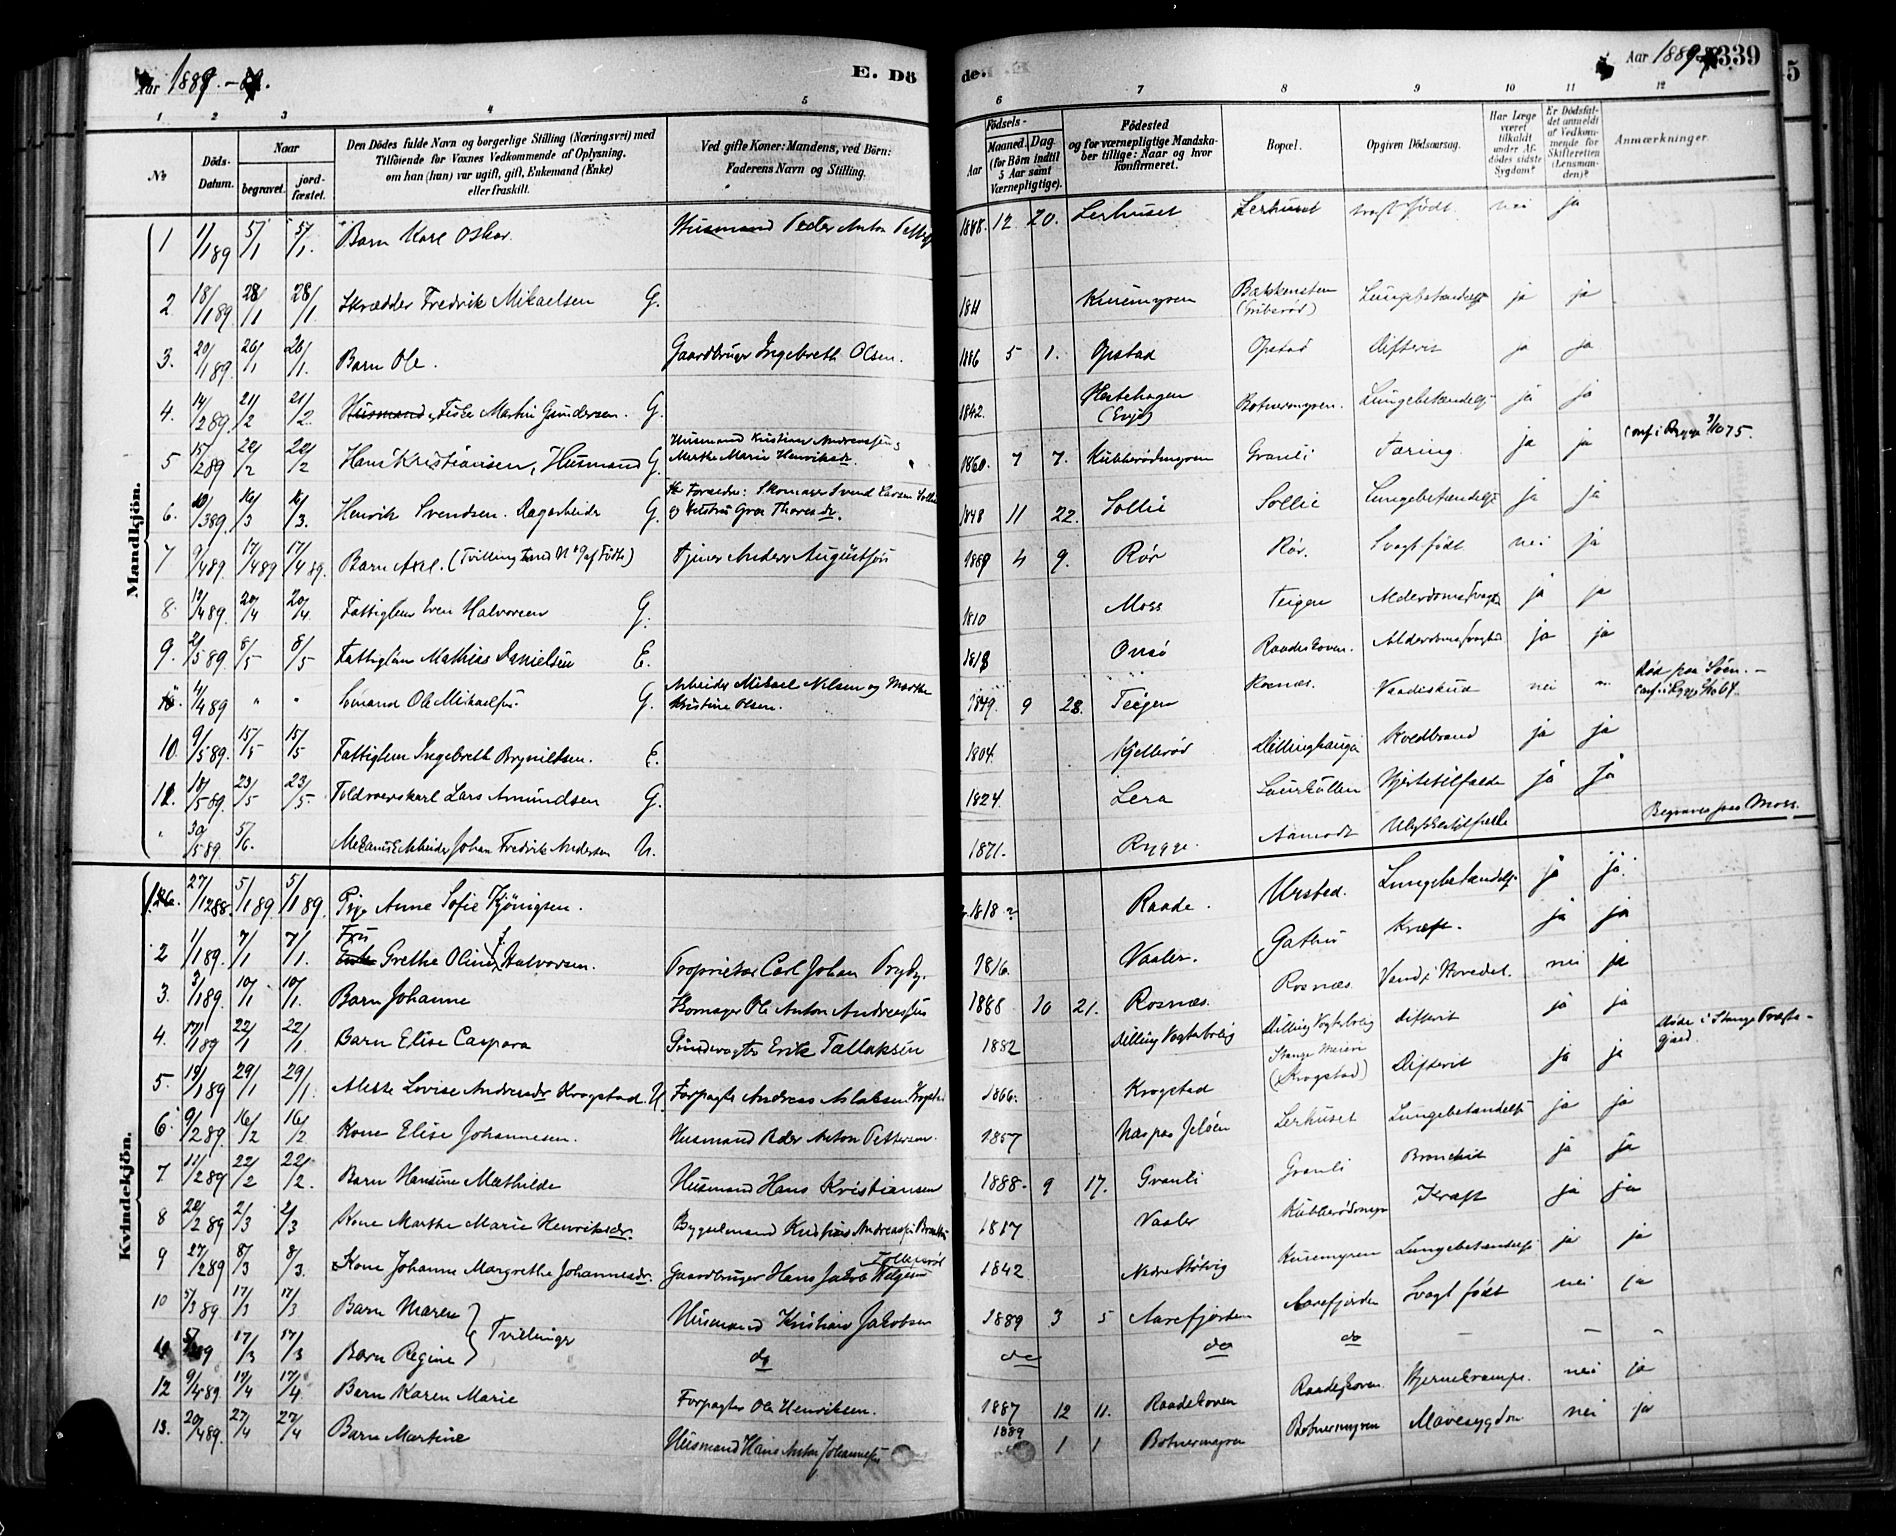 Aar 1889.
E. Dö
de.
Aar 1889
339
5
1 2 3 4 5 6 7 8 9 10 11 12
No
Döds-Datum.
Naar
begravet.
jord-fæstet.
Den Dödes fulde Navn og borgerlige Stilling (Næringsvei) med
Tilföiende for Voxnes Vedkommende af Oplysning,
om han (hun) var ugift, gift, Enkemand (Enke)
eller fraskilt.
Ved gifte Koner: Mandens, ved Börn:
Faderens Navn og Stilling.
Födsels-
Aar
Maaned. Dag
(for Börn indtil
5 Aar samt
Værnepligtige).
Födested
og for værnepligtige Mandska-
ber tillige: Naar og hvor
konfirmeret.
Bopæl.
Opgiven Dödsaarsag.
Har Læge
været
tilkaldt
under Af-
dödes sidste
Sygdom?
Er Dödsfal-
det anmeldt
af Vedkom-
mende for
Skifteretten
(Lensman-
den)?
Anmærkninger.
Mandkjön.
1 1/1 89 5/1 5/1. Barn Karl Oskar. Husmand Peder Anton 1888. 12 20. Lerhuset Lerhuset svagt födt. nei ja
2 18/1 89 28/1 28/1. Skrædder Fredrik Mikaelsen G. 1841 Kuremyren Bakkensten Lungebetændelse ja ja
3. 20/1 89. 26/1 26/1. Barn Ole. Gaardbruger Ingebreth Olsen. 1886 5 1. Opstad Opstad Difterit ja ja
4. 14/2 89. 21/2 21/2. Husmand, Martin Gundersen. G. 1842. Hestehagen Botnermyren. Lungebetændelse ja ja
5 15/2 89. 20/2 20/2 Hans Kristiansen, Husmand G. Husmand Kristian Andreassen og Marthe Marie Henriksdr. 1860. 7 7. Kubberödmyren Granli Tæring. ja ja
6. 10/3 89. 16/3 16/3. Henrik Svendsen. Dagarbeider G. Forældre: Skomager Svend Larsen Sollie og Hustru Thoresdr. 1848 11 22. Sollie Sollie Lungebetændelse ja ja
7 9/4 89. 17/4 89 17/4 89. Barn Axel. (Tvilling af Födte) Tjener Anders Augustsen 1889 4 9. Rör Rör. Svagt födt nei ja
8. 12/4 89. 20/4 20/4. Fattiglem Iver Halvorsen G. 1810 Moss Teigen Alderdomssvaghed ja ja
9. 2/5 89. 8/5 8/5 Fattiglem Mathias Danielsen E. 1818 Onsö Raadeskoven. Alderdomssvaghed ja ja
4/4 89 " " Sömand Ole Mikaelsen. G. Arbeider Mikael Nilsen og Marthe Kristine Olsen. 1849. 9 28. Teigen Rosnæs. Vaadeskud nei " Död paa Söen.
10. 9/5 89. 15/5 15/5 Fattiglem Ingebreth Brynildsen. E. 1804. Kjelleröd Dillinghaugen Koldbrand ja ja
11. 18/5 89. 23/5 23/5. Toldroerskarl Lars Amundsen G. 1824. Lera Saurkullen Hjertetilfælde ja ja
" 30/5 89. 5/6. Arbeider Johan Fredrik Andersen U. 1871. Rygge. Aamodt Ulykkestilfælde Begraves paa Moss.
Kvindekjön.
1. 27/12 88. 5/1 89 5/1 89. Pige Anne Sofie Kjönigsen. 1818 Raade. Urstad. Lungebetændelse ja ja.
2 1/1 89. 7/1 7/1. Fru Grethe Oline Halvorsen. Proprietær Carl Johan Pryds. 1816. Vaaler. Gathus Kræft. ja ja
3. 3/1 89. 10/1 10/1. Barn Johanne Skomager Ole Anton Andreassen 1888 10 21. Rosnæs. Rosnæs. Vand i Hovedet. nei ja
4. 17/1 89 22/1 22/1. Barn Elise Caspara Grindevogter Erik Tallaksen 1882 Dilling Vogterbolig Dilling Vogterbolig difterit ja ja
5. 19/1 89 29/1 29/1. Alette Lovise Andreasdr Krogstad. U. Forpagter Andreas Aslaksen Krogstad 1866. Krogstad Stange Meieri (Krogstad) Difterit ja ja Döde i Stange Præste-gjæld.
6. 9/2 89. 16/2 16/2 Kone Elise Johannesen. Husmand Peder Anton Pettersen. 1857 Næs paa Jelöen Lerhuset Lungebetændelse ja ja
7 11/2 89 22/2 22/2. Barn Hansine Mathilde Husmand Hans Kristiansen 1888. 9 17. Granli Granli Bronchit ja ja
8 20/2 89 2/3 2/3 Kone Marthe Marie Henriksdr. Bygselmand Kristian Andreassen 1817 Vaaler Kubberödmyr Kræft ja ja
9 27/2 89 8/3 8/3. Kone Johanne Margrethe Johannesdr. Gaardbruger Hans Jakob Helgesen 1842 Nedre Störtvig Kuremyren Lungebetændelse ja ja
10 5/3 89 17/3 17/3 Barn Maren } Tvillinger Husmand Kristian Jakobsen 1889 3 5 Aarefjorden Aarefjorden Svagt födt nei ja
17/3 17/3 Barn Regine do do do do – – –
12 9/4 89. 17/4 17/4. Barn Karen Marie Forpagter Ole Henriksen. 1887 12 11. Raadeskoven Raadeskoven. Hjernekrampe. nei ja
13. 20/4 89. 27/4 27/4 Barn Martine Husmand Hans Anton Johannessen 1889 1 1 Botnermyren Botnermyren Mavesygdom nei ja